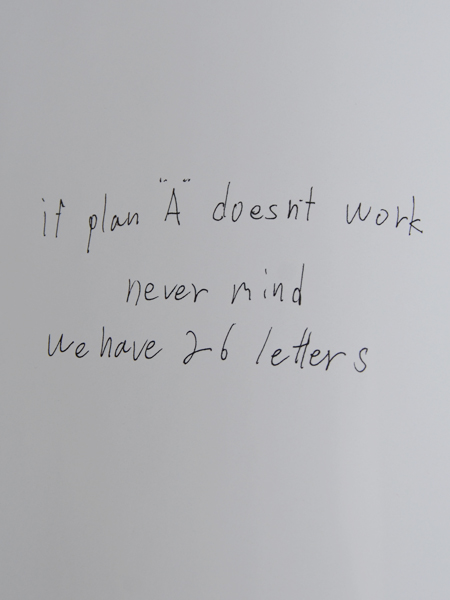 if plan "A" doesn't work
never mind
we have 26 letters